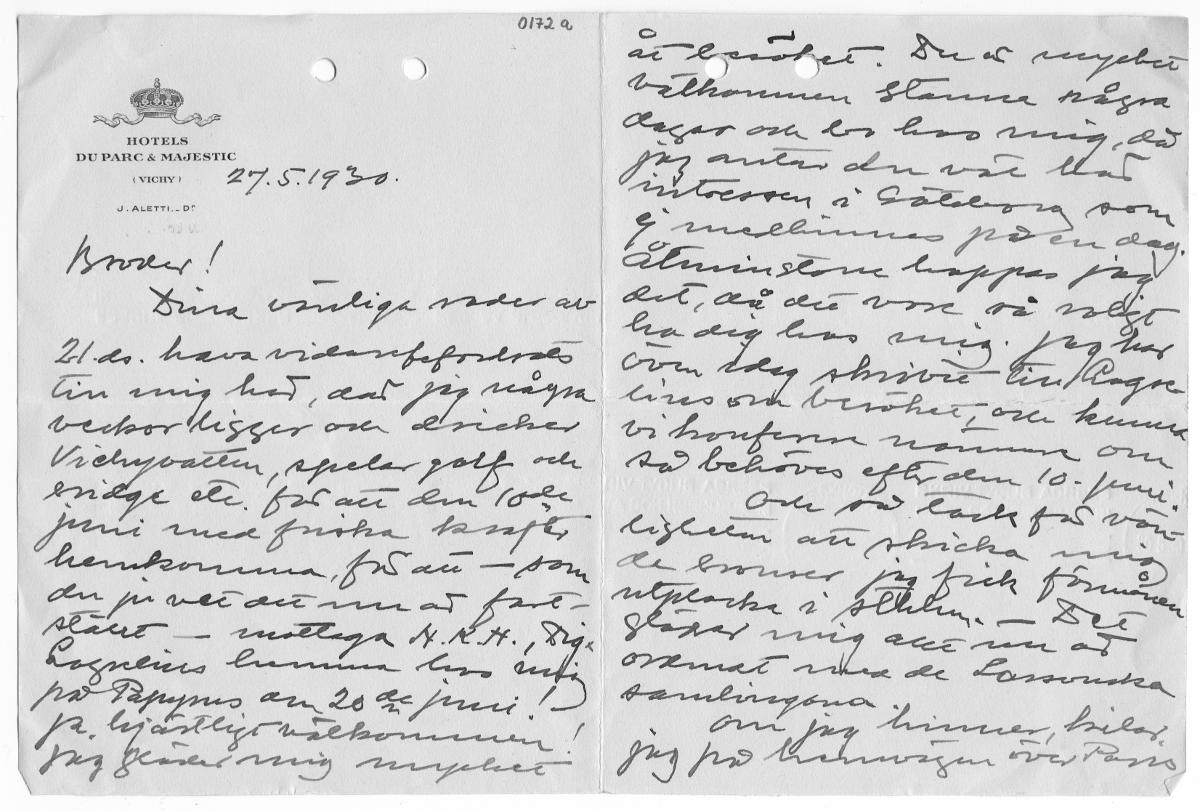 0172 a
HOTELS
DU PARC & MAJESTIC
(VICHY)
J. ALETTI._Dr
27.5.1930.
Broder!
Dina vänliga rader av
21.ds. hava vidarebefordrats
till mig här, där jag några
veckor ligger och dricker
Vichyvatten, spelar golf och
bridge etc. för att den 10de
juni med friska krafter
hemkomma, för att – som
du ju vet det nu är fast-
ställt – mottaga H.K.H., Dig,
Lagrelius hemma hos mig
på Papyrus den 20de juni!
Ja, hjärtligt välkommen!
Jag gläder mig mycket
åt besöket. Du är mycket
välkommen stanna några
dagar och bo hos mig, då
jag antar du väl har
intressen i Göteborg som
ej medhinnas på en dag.
Åtminstone hoppas jag
det, då det vore så roligt
ha dig hos mig. Jag har
även idag skrivit till Lagre-
lius om besöket, och kunna
vi konferera närmare om
så behöves efter den 10. juni.
Och så tack för vän-
ligheten att skicka mig
de bronser jag fick förmånen
utplocka i Sthlm. Det
gläder mig att nu är
ordnat med de Larsonska
samlingarna.
Om jag hinner, kilar
jag på hemvägen över Paris